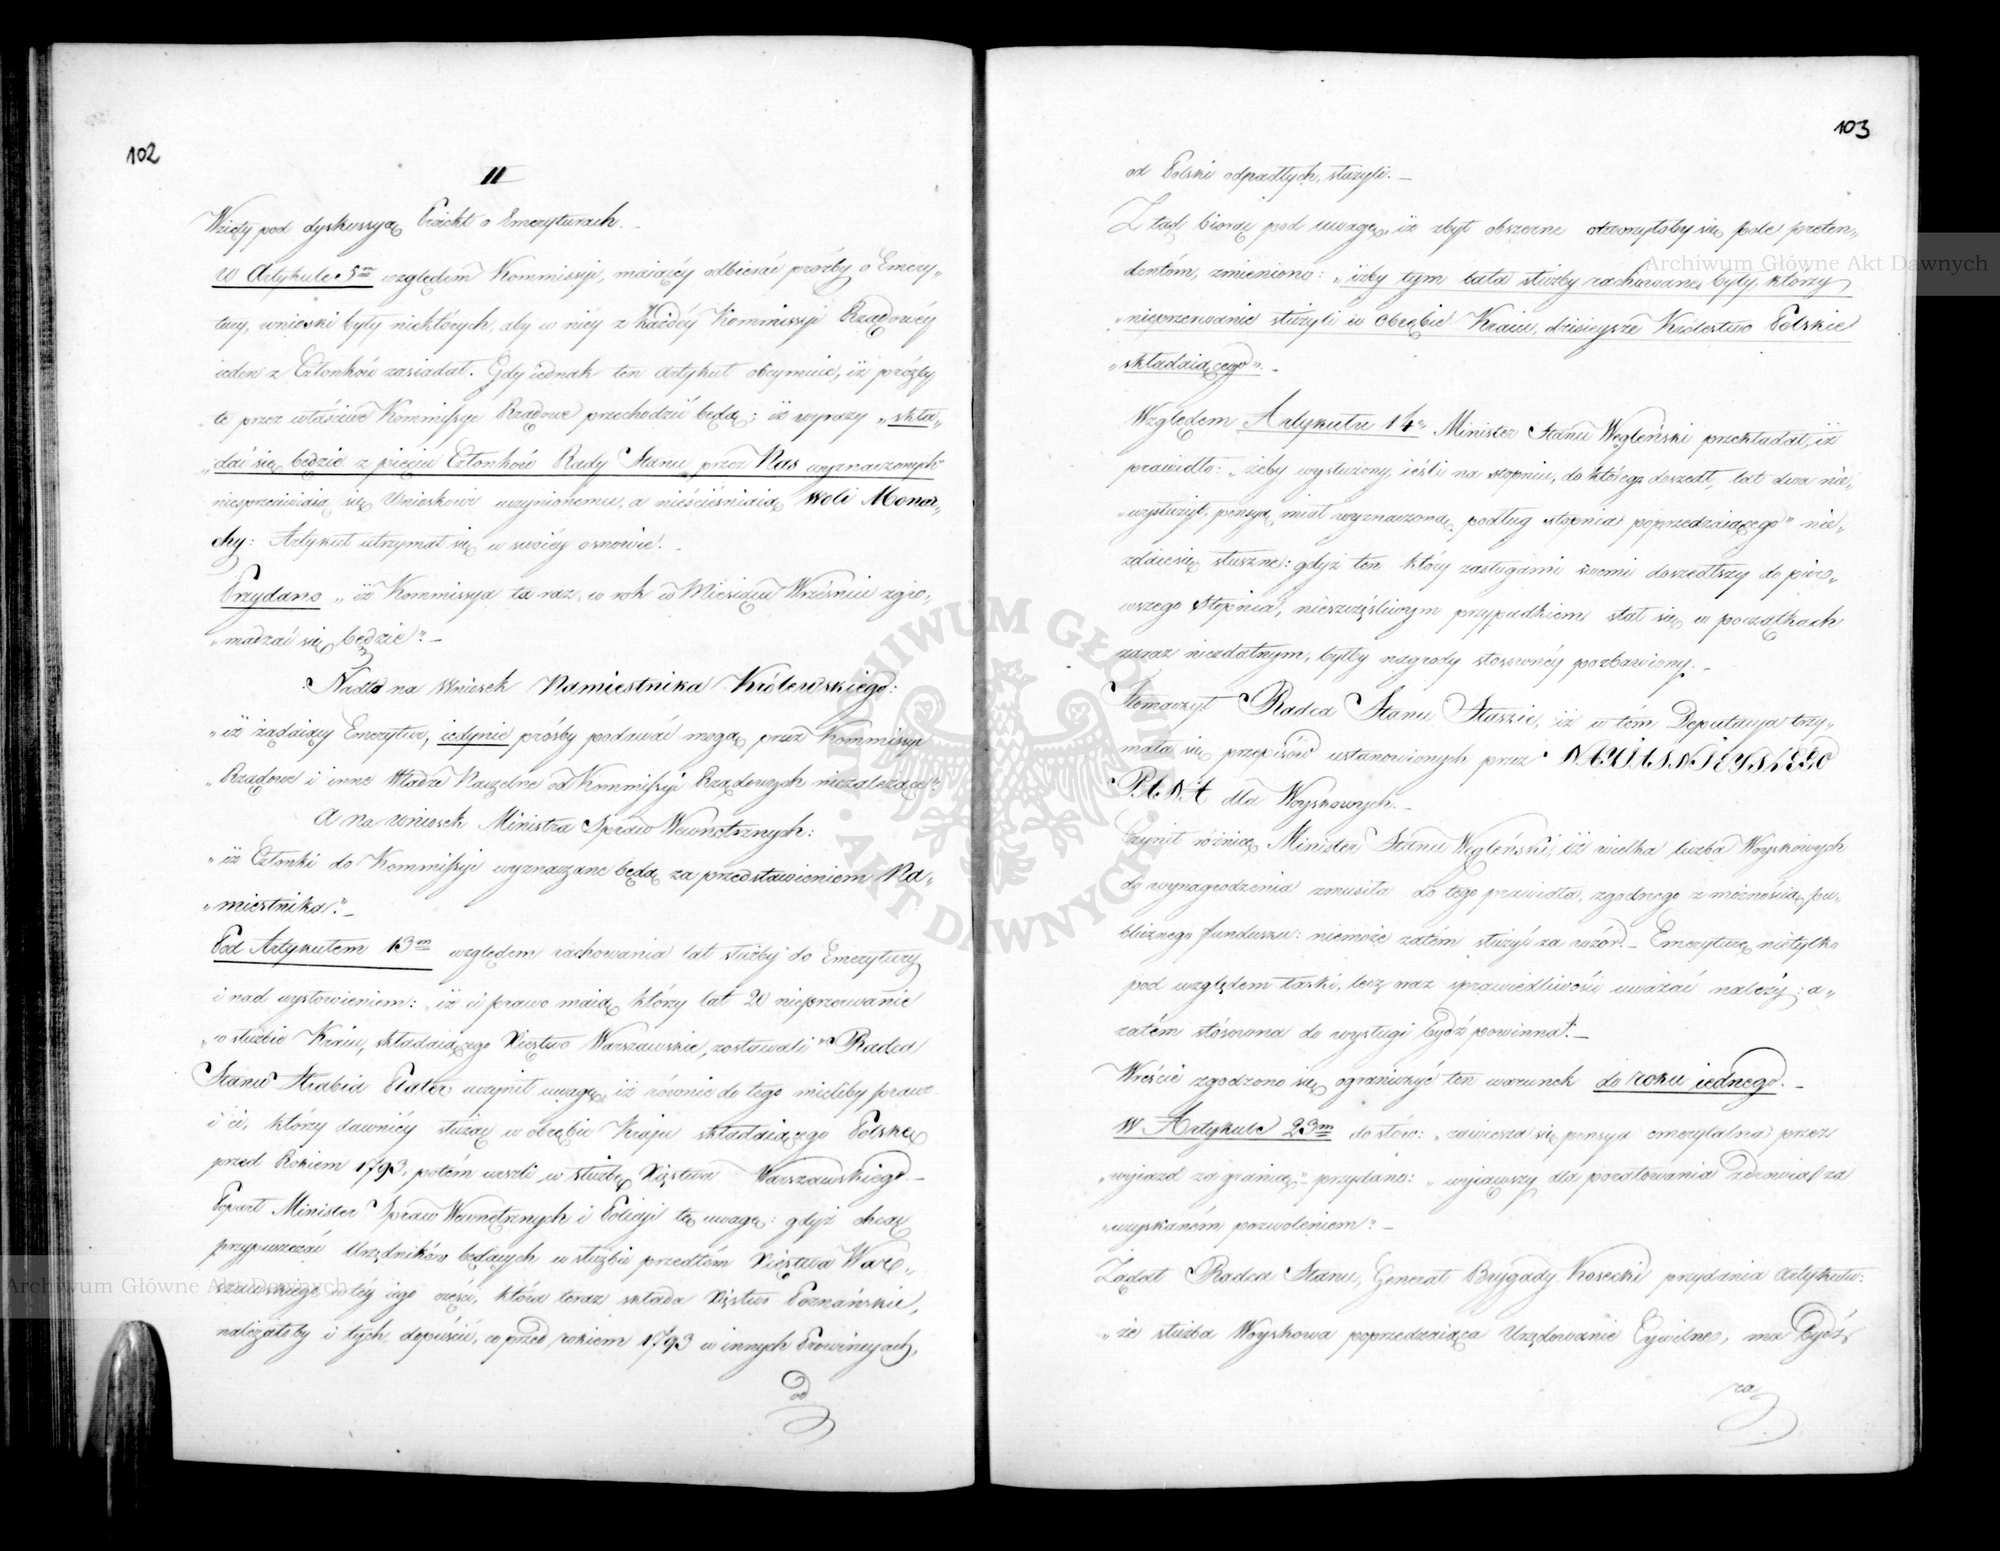 102
II
Wzięty pod dyskussyą Proiekt o Emeryturach. _
w Artykule 5m względem Kommissyi, maiącéy odbierać proźby o Emery„
tury, wnioski były niektórych, aby w niéy z każdéy Kommissyi Rządowéy
ieden z Członków zasiadał. Gdy iednak ten Artykuł obeymuie, iż proźby
te przez właściwe Kommissye Rządowe przechodzić będą; iż wyrazy „skła„
„dać się będzie z pięciu Członków Rady Stanu przez Nas wyznaczonych"
niesprzeciwiaią się Wnioskowi uczynionemu, a nieścieśniaią Woli Monar„
chy: Artykuł utrzymał się w swoiéy osnowie. _
Przydano „iż Kommissya ta raz w rok w Miesiącu Wrześniu zgro„
„madzać się będzie". _
Nadto na Wniosek Namiestnika Królewskiego:
„iż żądaiący Emerytur, iedynie prośby podawać mogą przez Kommissye
„Rządowe i inne Władze Naczelne od Kommissyi Rządowych niezależące":
A na Wniosek Ministra Spraw Wewnętrznych:
„iż Członki do Kommissyi wyznaczane będą za przedstawieniem Na„
„miestnika". _
Pod Artykułem 13m względem rachowania lat służby do Emerytury
i nad wysłowieniem: „iż ci prawo maią, którzy lat 20 nieprzerwanie
„w służbie Kraiu, składaiącego Xięstwo Warszawskie, zostawali" Radca
Stanu Hrabia Plater uczynił uwagę, iż równie do tego mieliby prawo
i ci, którzy dawniéy służąc w obrębie Kraju składaiącego Polskę
przed Rokiem 1793, potém weszli w służbę Xięstwa Warszawskiego. _
Poparł Minister Spraw Wewnętrznych i Policyi tę uwagę: gdyż chcąc
przypuszczać Urzędników będących w służbie przedtém Xięstwa War„
szawskiego, w téy iego części, która teraz składa Xięstwo Poznańskie,
należałoby i tych dopuścić, co przed rokiem 1793 w innych Prowincyach,
od
103
od Polski odpadłych, służyli. _
Z tąd biorąc pod uwagę, iż zbyt obszerne otworzyłoby się pole preten„
dentóm, zmieniono: „iżby tym lata służby rachowane były, którzy
„nieprzerwanie służyli w obrębie Kraiu, dzisieysze Królestwo Polskie
„składaiącego". _
Względem Artykułu 14o Minister Stanu Węgleński przekładał, iż
prawidło: „żeby wysłużony, ieśli na stopniu, do którego doszedł, lat dwa nie„
„wysłużył, pensyą miał wyznaczoną podług stopnia poprzedzaiącego" nie„
zdaie się słuszne: gdyż ten który zasługami swemi doszedłszy do pier„
wszego stopnia, nieszczęśliwym przypadkiem stał się w początkach
zaraz niezdatnym, byłby nagrody stosownéy pozbawiony. _
Tłomaczył Radca Stanu Staszic, iż w tém Deputacya trzy„
mała się przepisów ustanowionych przez NAYIASNIEYSZEGO
PANA dla Woyskowych. _
Czynił różnicę Minister Stanu Węgleński, iż wielka liczba Woyskowych
do wynagrodzenia zmusiła do tego prawidła, zgodnego z możnością pu„
blicznego funduszu: niemoże zatém służyć za wzór. _ Emeryturę nietylko
pod względem łaski, lecz oraz sprawiedliwości uważać należy: a„
zatém stósowna do wysługi bydź powinna. _
Wreście zgodzono się ograniczyć ten warunek do roku iednego. _
W Artykule 23m do słów: „zawiesza się pensya emerytalna przez
„wyiazd za granicę" przydano: „wyiąwszy dla poratowania Zdrowia za
„uzyskaném pozwoleniem". _
Żądał Radca Stanu, Generał Brygady Kosecki przydania Artykułu:
„że służba Woyskowa poprzedzaiąca Urzędowanie Cywilne, ma bydź
ra
Archiwum Główne Akt Dawnych
Archiwum Główne Akt Dawnych
ARCHIWUM GŁÓWNE AKT DAWNYCH